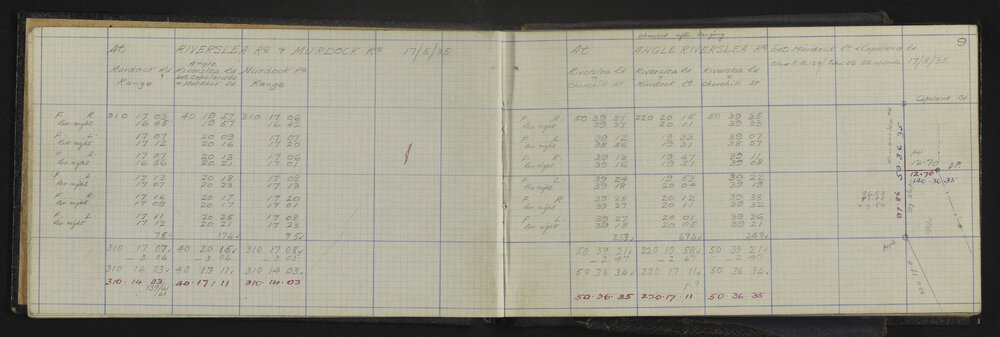 At RIVERSLEA Rd & MURDOCK Rd 17/5/35
Murdock Rd Range
Angle Riverslea Rd bet Copeland Rd & Murdock Rd
Murdock Rd Range
F. R. 310 17 03 40 19 57 310 17 06
Rev night 16 48 19 57 16 42
F. L. 17 07 20 09 17 07
Rev night 17 12 20 16 17 20
F. R. 17 07 20 13 17 06
Rev night 16 56 20 21 17 01
F. L. 17 13 20 18 17 08
Rev night 17 07 20 23 17 13
F. R. 17 16 20 17 17 20
Rev night 17 09 20 17 17 01
F. L. 17 11 20 25 17 08
Rev night 17 12 20 21 17 23
78. 174. 95.
310 17 07. 40 20 15. 310 17 08.
– 3 04 – 3 04 – 3 05
310 14 03. 40 17 11 310 14 03.
310. 14. 03 40. 17. 11 310. 14. 03
9
At ANGLE RIVERSLEA Rd bet. Murdock Rd & Copeland Rd
17/5/35
Riverslea Rd Churchill St
Riverslea Rd Murdock Rd
Riverslea Rd Churchill St
F. R. 50 39 37 220 20 15 50 39 35
Rev night 39 37 20 11 39 33
F. L. 39 12 19 33 39 07
Rev night 38 56 19 31 38 27
F. R. 39 13 19 47 39 11
Rev night 39 16 19 31 39 08
F. L. 39 24 19 53 39 22
Rev night 39 18 20 04 39 19
F. R. 39 28 20 12 39 38
Rev night 39 27 20 11 39 32
F. L. 39 27 20 01 39 26
Rev night 39 18 20 05 39 21
50 39 21. 220 19 58. 50 39 21
– 2 47 – 2 47 – 2 47
50 36 34. 220 17 11. 50 36 34.
50. 36. 35 220. 17. 11 50. 36. 35
Copeland Rd
Riverslea Rd
50. 36. 35
12.70
12.70
140. 36. 35
97.86